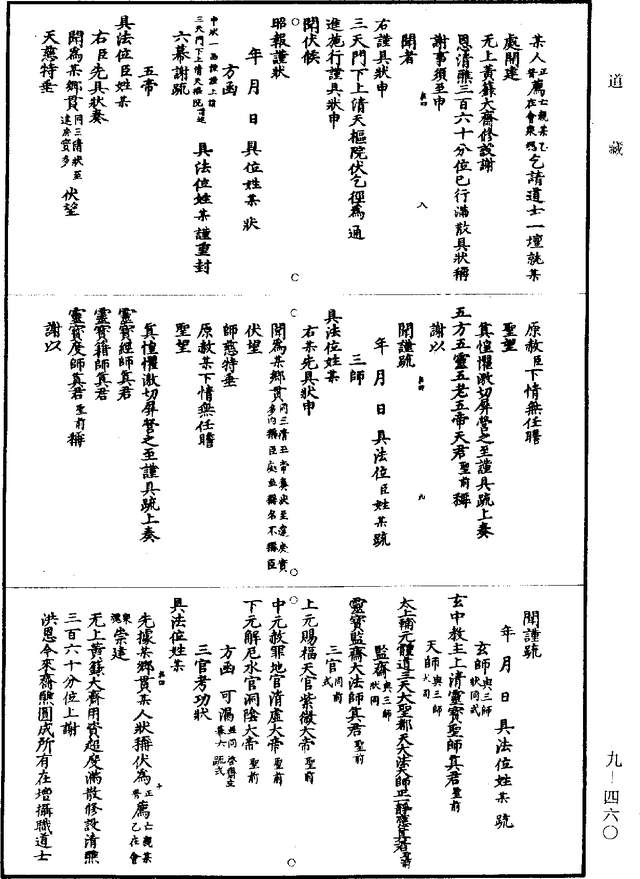 道藏
某人正薦亡親某乙
普在會衆魂乞請道士一壇就某
處開建
无上黃籙大齋修設謝
恩清醮三百六十分位已行滿散具狀稱
謝事須至申
聞者
右謹具狀申
三天門下上清天樞院伏乞徑為通
進施行謹具狀申
聞伏候
昭報謹狀
年月日具位姓某狀
方函
申狀一函謹謹上詣
三天門下上清天樞院
具法位姓某謹重封
六幕謝疏
五帝
具法位臣姓某
右臣先具狀奏
聞為某鄉貫同三清狀至
伏望
天慈特垂
原赦臣下情無任瞻
聖望
眞惶懼激切屏營之至謹具疏上奏
五方五靈五老五帝天君聖前稱
謝以
聞謹疏
年月日具法位臣姓某疏
三師
具法位姓某
右某先具狀申
聞為某鄉貫
伏望
師慈特垂
原赦某下情無任瞻
聖望
眞惶懼激切屏營之至謹具疏上奏
靈寶經師眞君
靈寶籍師眞君
靈寶度師眞君聖前稱
謝以
聞謹疏
年月日具法位姓某疏
玄師與三師狀同式
玄中教主上清靈寶聖師眞君聖前
天師與三師
監齋與三師狀同
靈寶監齋大法師眞君聖前
三官同前式
上元賜福天官紫微大帝聖前
中元赦罪地官清虛大帝聖前
下元解厄水官洞陰大帝聖前
方函可漏
三官考功狀
具法位姓某
先據某鄉貫某人狀稱伏為正薦亡親某
乙在會
衆魂崇建
无上黃籙大齋用資超度滿散修設清醮
三百六十分位上謝
洪恩今來齋醮圓成所有在壇攝職道士
九—四六〇